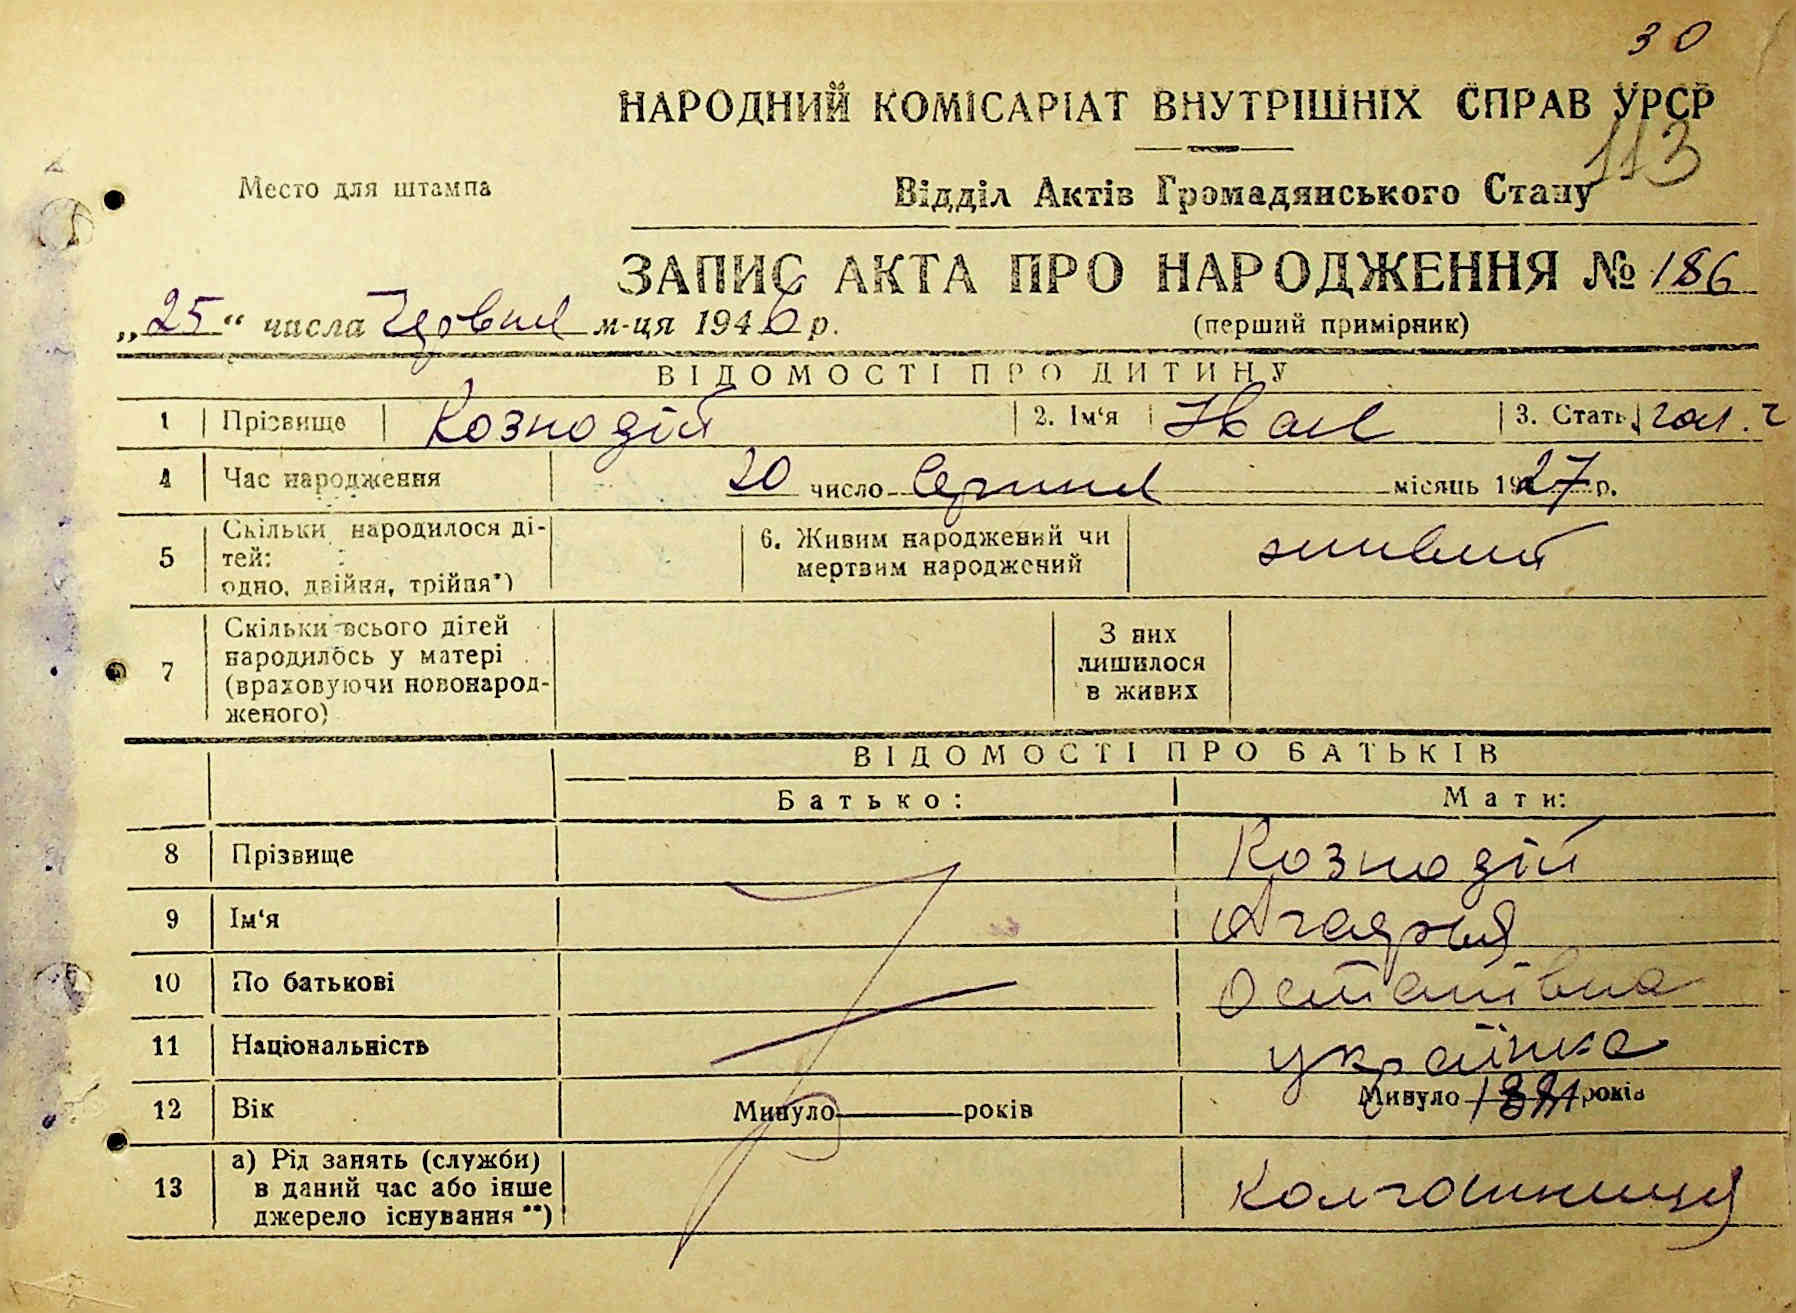 30
НАРОДНИЙ КОМІСАРІАТ ВНУТРІШНІХ СПРАВ УРСР
113
Место для штампа
Відділ Актів Громадянського Стану
ЗАПИС АКТА ПРО НАРОДЖЕННЯ № 186
„25“ числа Червня м-ця 1946 р.
(перший примірник)
ВІДОМОСТІ ПРО ДИТИНУ
1 Прізвище Козподій 2. Ім‘я Іван 3. Стать чол. ч
4 Час народження 20 число Серпня місяць 1927 р.
5 Скільки народилося ді-
тей:
одно, двійня, трійня*)
6. Живим народжений чи
мертвим народжений
живий
7 Скільки всього дітей
народилось у матері
(враховуючи новонарод-
женого)
З них
лишилося
в живих
ВІДОМОСТІ ПРО БАТЬКІВ
Батько: Мати:
8 Прізвище Козподій
9 Ім‘я
10 По батькові Остапівна
11 Національність українка
12 Вік Минуло років Минуло років
13 а) Рід занять (служби)
в даний час або інше
джерело існування **)
колгоспниця